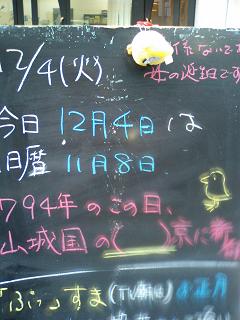 12/4(火)
係ないです
母の誕生日です
今日 12月4日は
旧暦 11月8日
794年のこの日、
山城国の( )京に
「ぷっ」すま(TV朝日)お正月